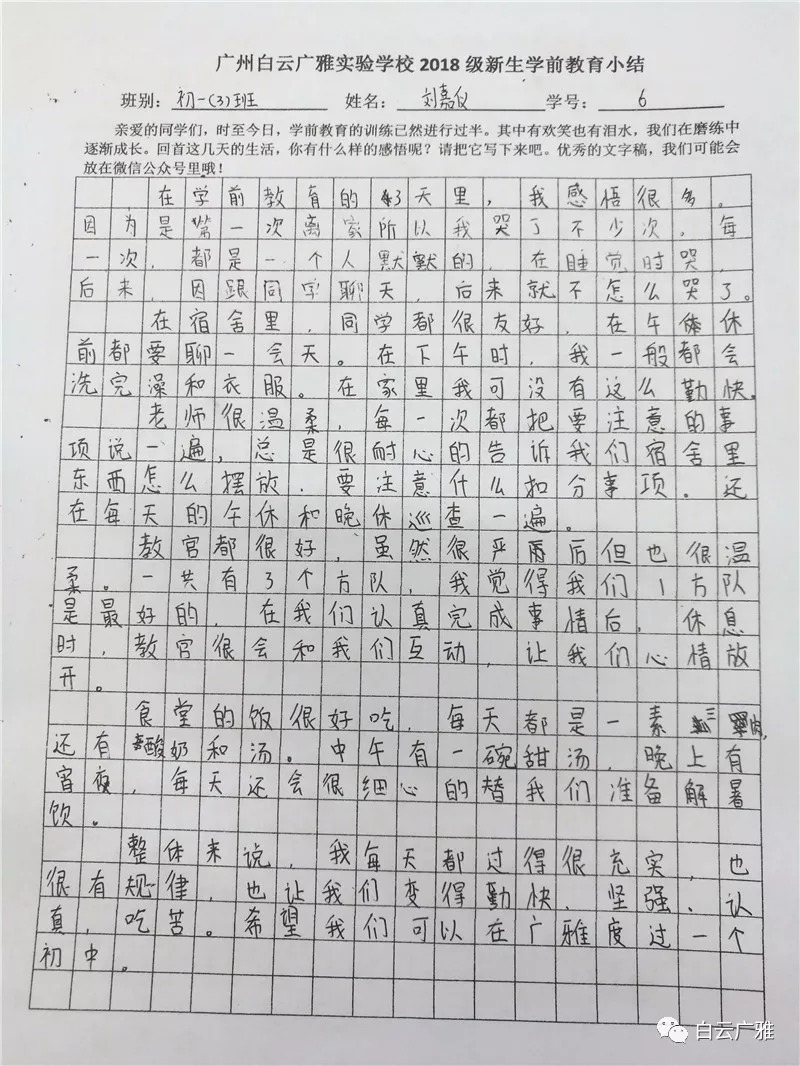 广州白云广雅实验学校2018级新生学前教育小结
班别：初一(3)班 姓名：刘嘉仪 学号：6
亲爱的同学们，时至今日，学前教育的训练已然进行过半。其中有欢笑也有泪水，我们在磨练中
逐渐成长。回首这几天的生活，你有什么样的感悟呢？请把它写下来吧。优秀的文字稿，我们可能会
放在微信公众号里哦！
在学前教育的3天里，我感悟很多。
因为是第一次离家所以我哭了不少次，每
一次，都是一个人默默的，在睡觉时哭，
后来，因跟同学聊天，后来就不怎么哭了。
在宿舍里，同学都很友好，在午休
前都要聊一会天。在下午时，我一般都会
洗完澡和衣服。在家里我可没有这么勤快。
老师很温柔，每一次都把要注意的事
项说一遍，总是很耐心的告诉我们宿舍里
东西怎么摆放，要注意什么扣分事项。还
在每天的午休和晚休巡查一遍。
教官都很好，虽然很严厉但也很温
柔。一共有3个方队，我觉得我们1方队
是最好的，在我们认真完成事情后，休息
时，教官很会和我们互动，让我们心情放
开。
食堂的饭很好吃，每天都是一素三肉，
还有酸奶和汤。中午有一碗甜汤，晚上有
宵夜，每天还会很细心的替我们准备解暑
饮。
整体来说，我每天都过得很充实，也
很有规律，也让我们变得勤快、坚强、认
真，吃苦。希望我们可以在广雅度过一个
初中。
白云广雅